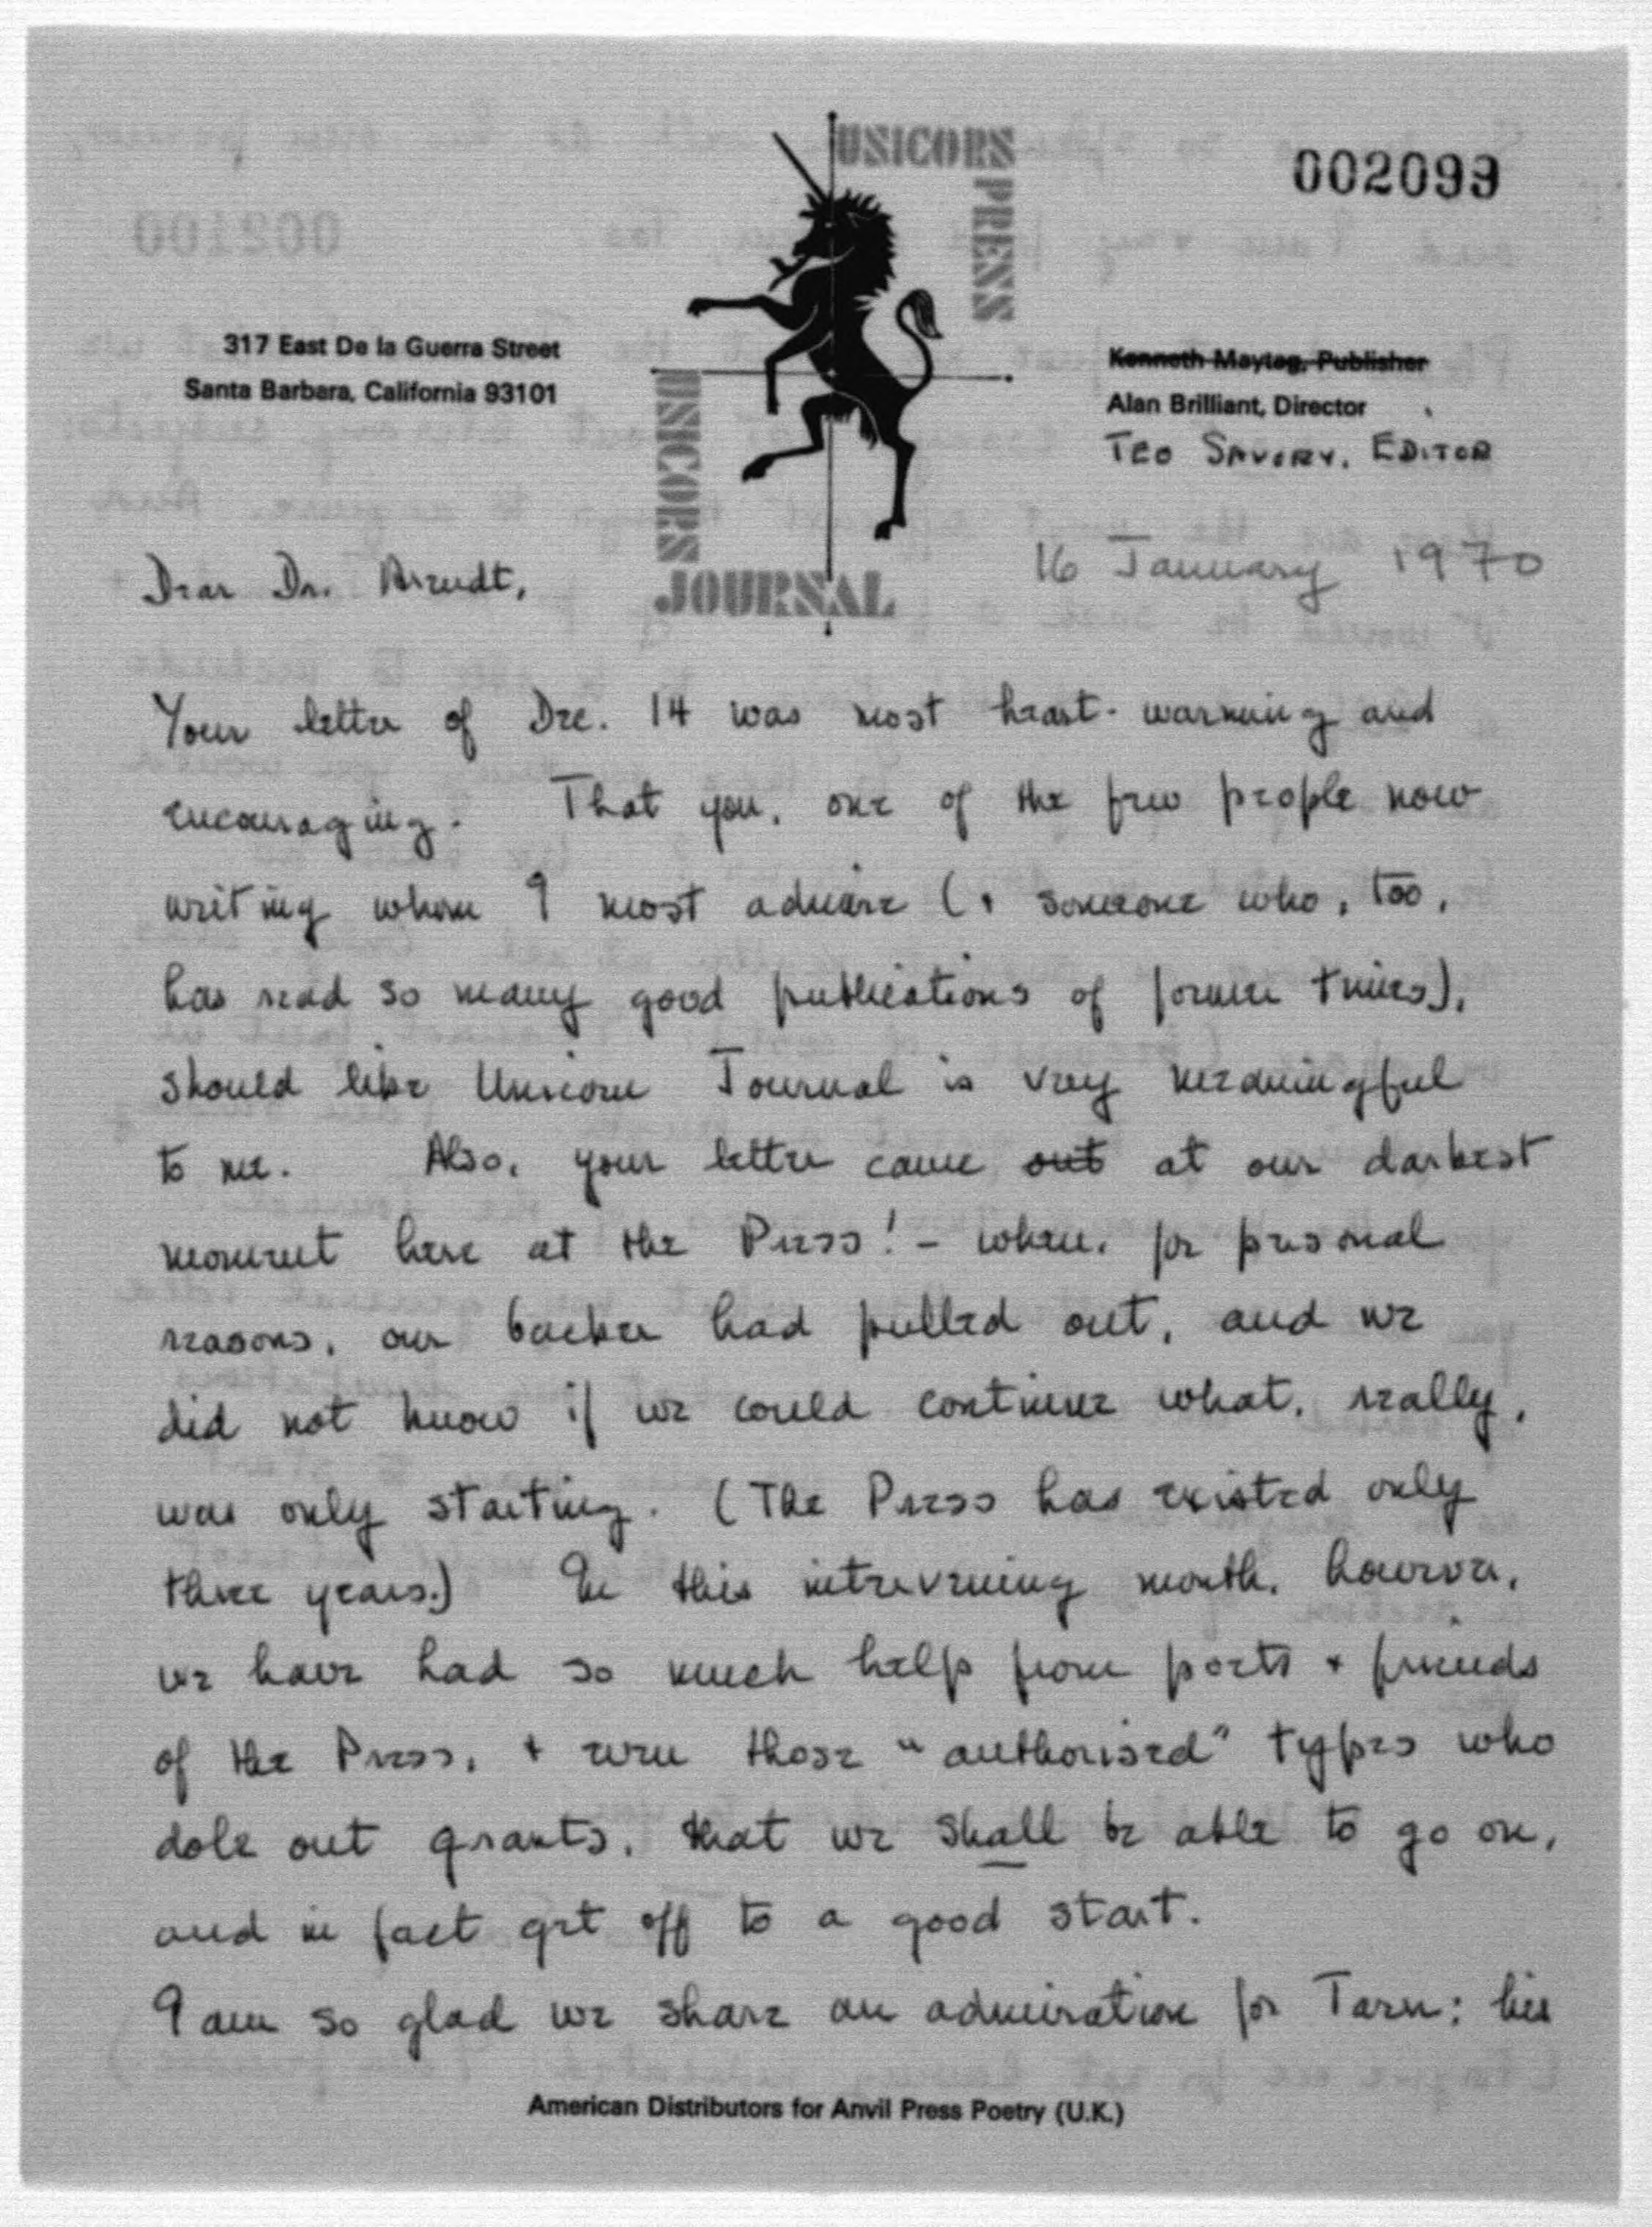 UNICORN
PRESS
002099
317 East De la Guerra Street
Santa Barbara, California 93101
Kenneth Maytag, Publisher
Alan Brilliant, Director
TEO SAVORY, EDITOR
UNICORN
JOURNAL
16 January 1970
Dear Dr. Arendt,
Your letter of Dec. 14 was most heart-warming and
encouraging. That you, one of the few people now
writing whom I most admire (+ someone who, too,
has read so many good publications of former times),
should like Unicorn Journal is very meaningful
to me. Also, your letter came out at our darkest
moment here at the Press! - when, for personal
reasons, our backer had pulled out, and we
did not know if we could continue what, really,
was only starting. (The Press has existed only
three years.) In this intervening month, however,
we have had so much help from poets + friends
of the Press, + even those "authorised" types who
dole out grants, that we shall be able to go on,
and in fact get off to a good start.
I am so glad we share an admiration for Tarn; his
American Distributors for Anvil Press Poetry (U.K.)